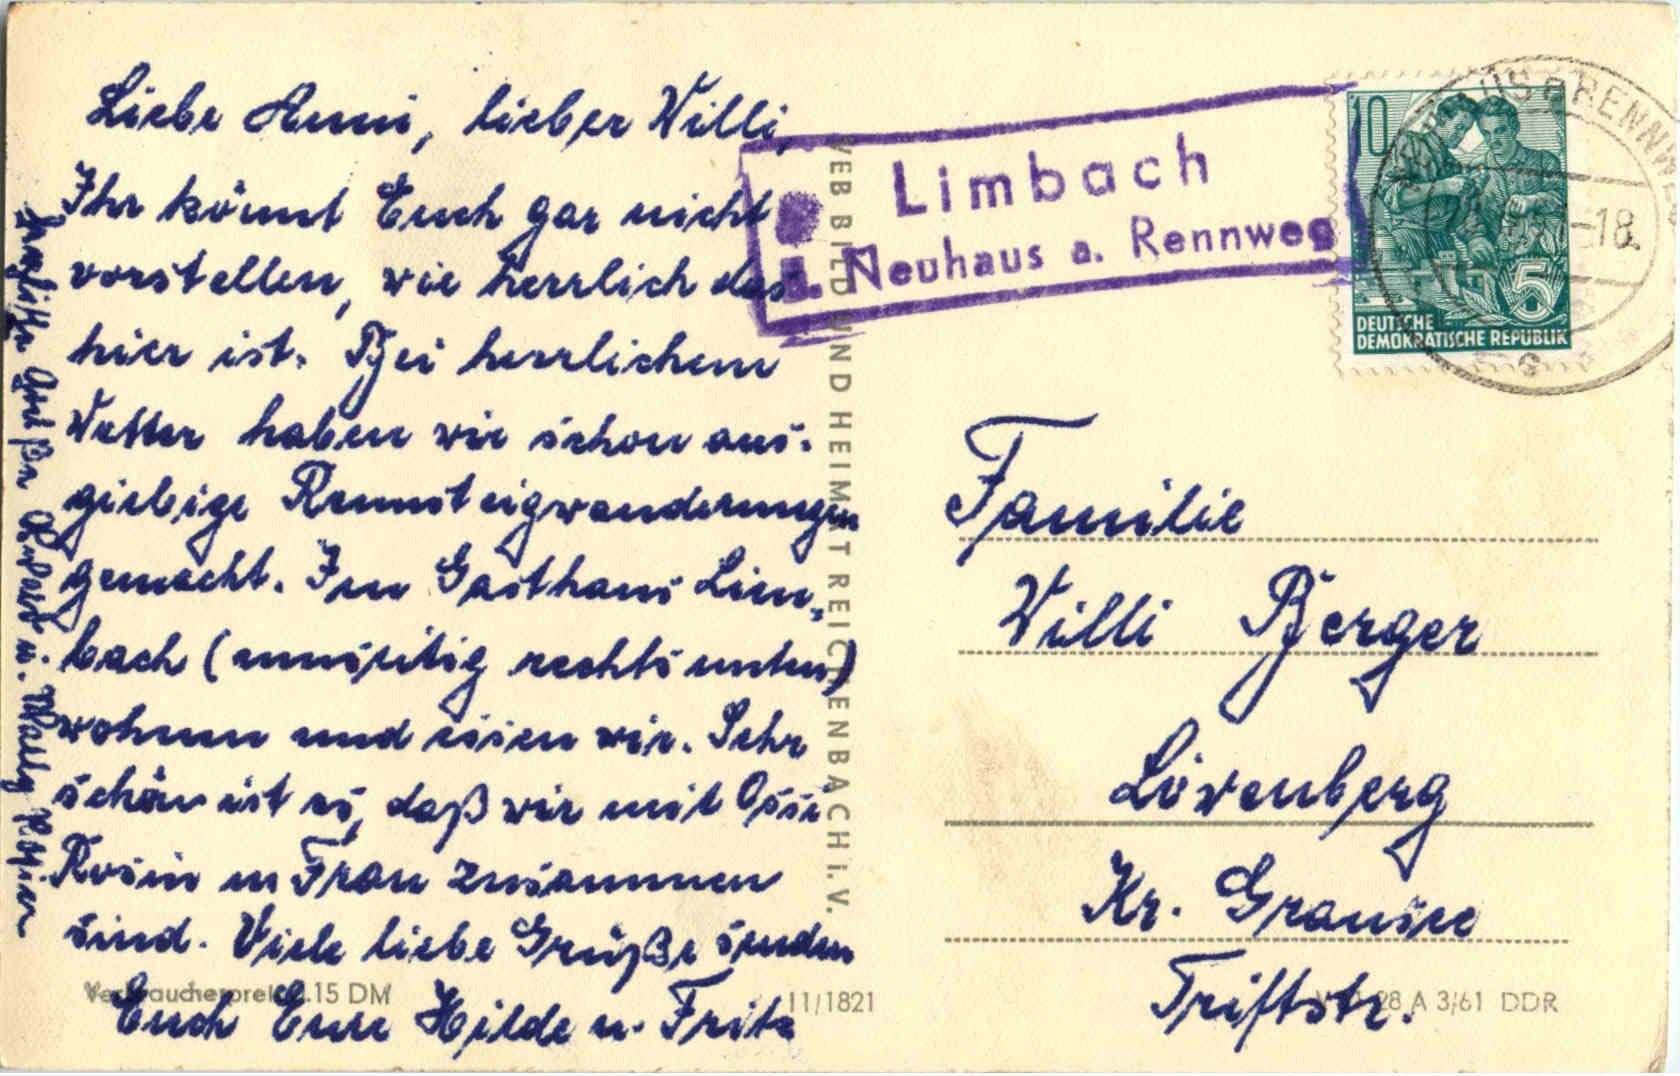 Liebe Anni, lieber Willi,
Ihr könnt Euch gar nicht
vorstellen, wie herrlich das
hier ist. Bei herrlichem
Wetter haben wir schon aus-
giebige Rennsteigwanderungen
gemacht. Im Gasthaus Lim-
bach (umseitig rechts unten)
wohnen und essen wir. Sehr
schön ist es, daß wir mit Ossi
Rosin u Frau zusammen
sind. Viele liebe Grüße senden
Euch Eure Hilde u. Fritz
Grüße
u. Wally
Verbraucherpreis 0.15 DM
11/1821
VEB BILD UND HEIMAT REICHENBACH i. V.
Limbach
ü. Neuhaus a. Rennweg
NEUHAUS a RENNWEG
-18
c
10
5
DEUTSCHE
DEMOKRATISCHE REPUBLIK
Familie
Willi Berger
Löwenberg
Kr. Gransee
Triftstr.
28 A 3/61 DDR